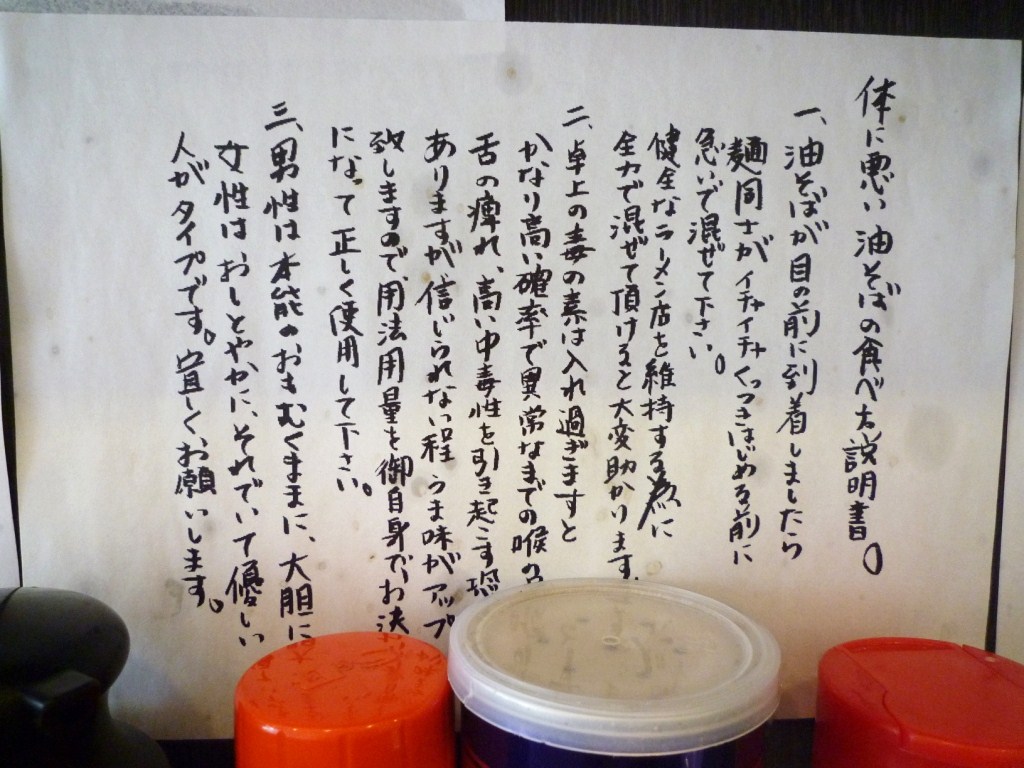 体に悪い油そばの食べ方説明書。
一、油そばが目の前に到着しましたら
麺同士がイチャイチャくっつきはじめる前に
急いで混ぜて下さい。
健全なラーメン店を維持する為に
全力で混ぜて頂けると大変助かります。
二、卓上の毒の素は入れ過ぎますと
かなり高い確率で異常なまでの喉の
舌の痺れ、高い中毒性を引き起こす恐
ありますが、信じられない程、うま味がアップ
致しますので、用法用量を御自身で、お決
になって正しく使用して下さい。
三、男性は本能のおもむくままに、大胆に
女性は、おしとやかに、それでいて優しい
人がタイプです。宜しく、お願いします。